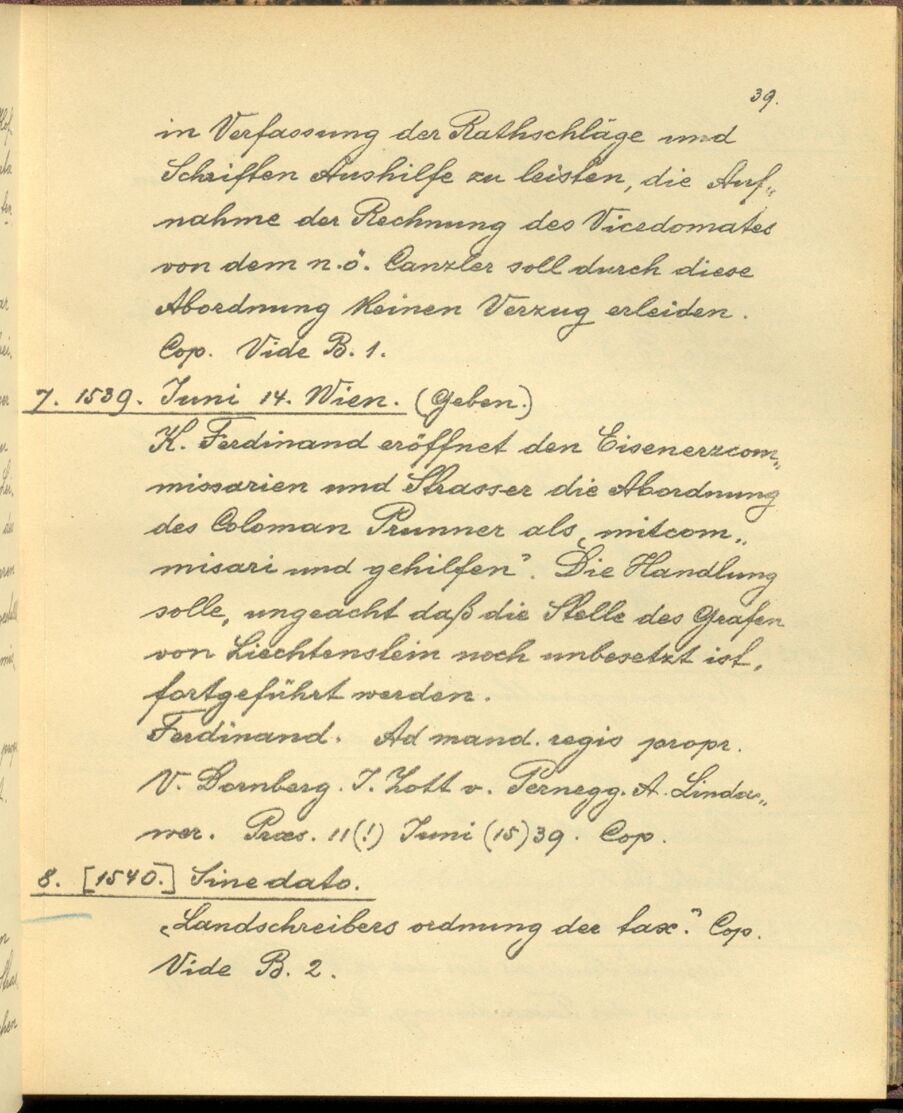 39.
in Verfassung der Rathschläge und
Schriften Aushilfe zu leisten, die Auf„
nahme der Rechnung des Vicedomates
von dem n.ö. Canzler soll durch diese
Abordnung keinen Verzug erleiden.
Cop. Vide B. 1.
7. 1539. Juni 14. Wien. (Geben.)
K. Ferdinand eröffnet den Eisenerzcom„
missarien und Strasser die Abordnung
des Coloman Prunner als „mitcom„
misari und gehilfen”. Die Handlung
solle, ungeacht daß die Stelle des Grafen
von Liechtenstein noch unbesetzt ist,
fortgeführt werden.
Ferdinand. Ad mand. regis propr.
V. Dornberg. J. Zott v. Pernegg. A. Linda„
wer. Præs. 11(!) Juni (15)39. Cop.
8. [1540.] Sine dato.
„Landschreibers ordnung der tax.” Cop.
Vide B. 2.